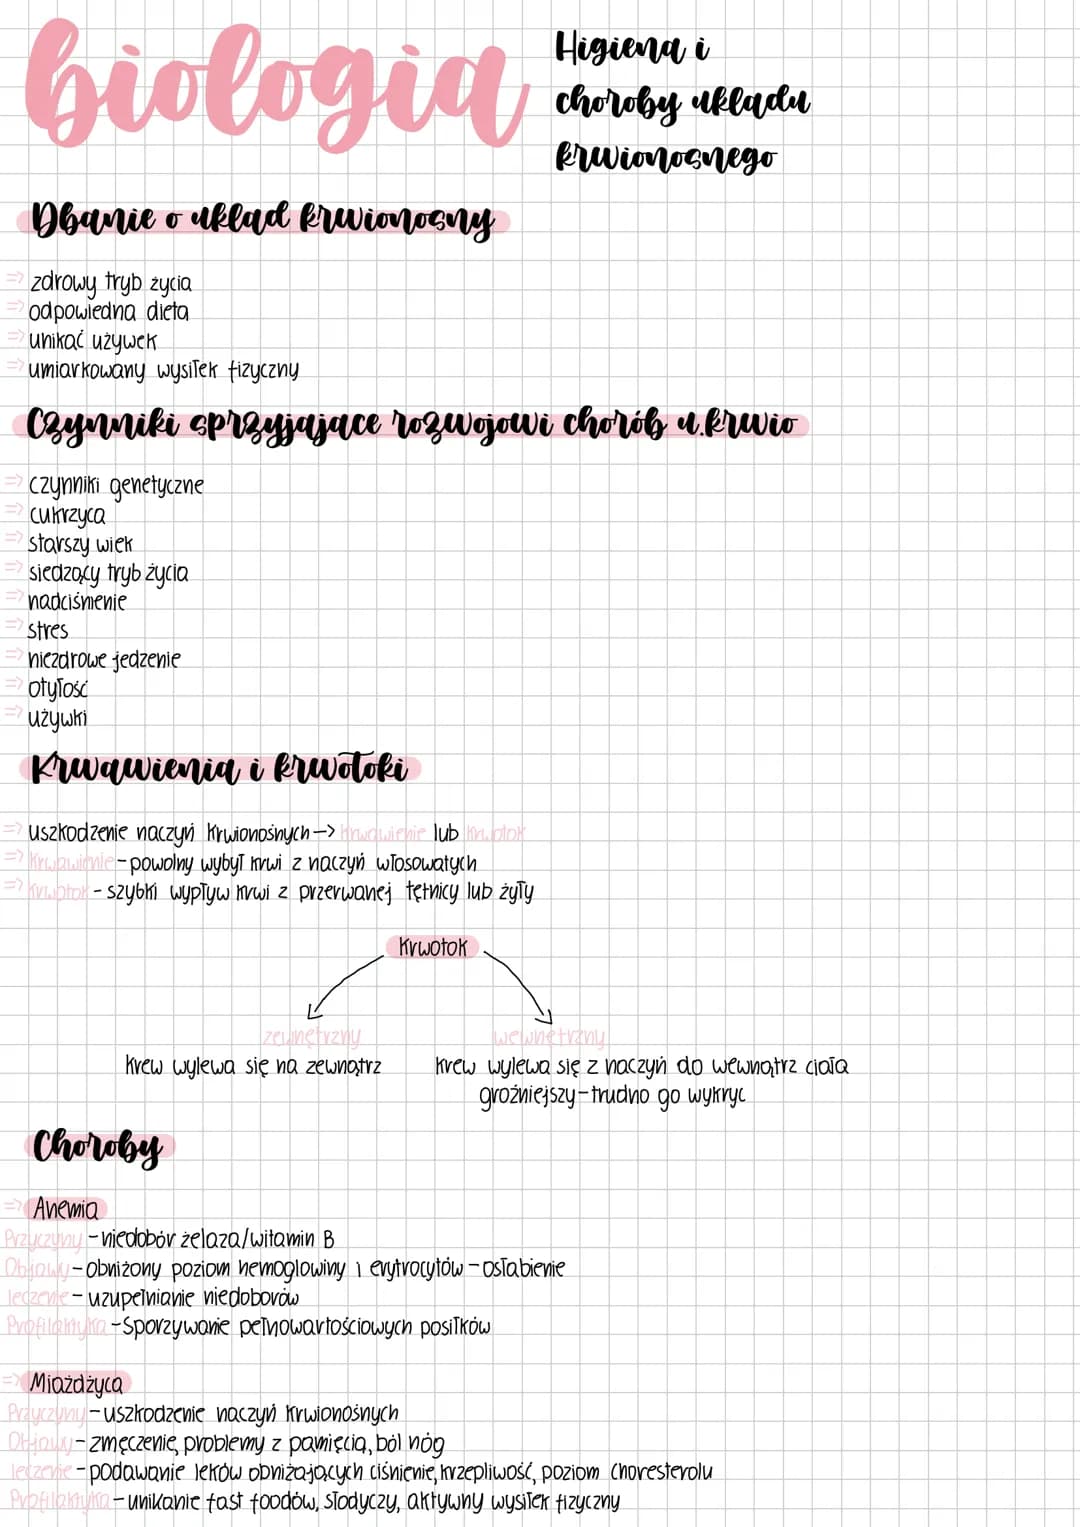 biologia
Higiena i
choroby układu
krwionosnego
Dbanie o układ krwionosny
=> zdrowy tryb życia
=> odpowiedna dieta
=> unikać używek
=> umiarkowany wysiłek fizyczny
Czynniki sprzyjające rozwojowi chorób u.krwio
=> czynniki genetyczne
=> cukrzyca
=> starszy wiek
=> siedzący tryb życia
=> nadciśnienie
=> stres
=> niezdrowe jedzenie
=> otyłość
=> używki
Krwawienia i krwotoki
=> uszkodzenie naczyń krwionośnych -> krwawienie lub krwotok
=> Krwawienie - powolny wybył krwi z naczyń włosowatych
=> Krwotok - szybki wypływ krwi z przerwanej tętnicy lub żyły
Krwotok
zewnętrzny wewnętrzny
Krew wylewa się na zewnątrz Krew wylewa się z naczyń do wewnątrz ciała
groźniejszy - trudno go wykryc
Choroby
=> Anemia
Przyczyny - niedobór żelaza/witamin B
Objawy - obniżony poziom hemoglowiny i erytrocytów - osłabienie
leczenie - uzupełnianie niedoborów
Profilaktyka - Sporzywanie pełnowartościowych posiłków
=> Miażdżyca
Przyczyny - uszkodzenie naczyń krwionośnych
Objawy - zmęczenie, problemy z pamięcią, ból nóg
leczenie - podawanie leków obniżających ciśnienie, krzepliwość, poziom choresterolu
Profilaktyka - unikanie fast foodów, słodyczy, aktywny wysiłek fizyczny